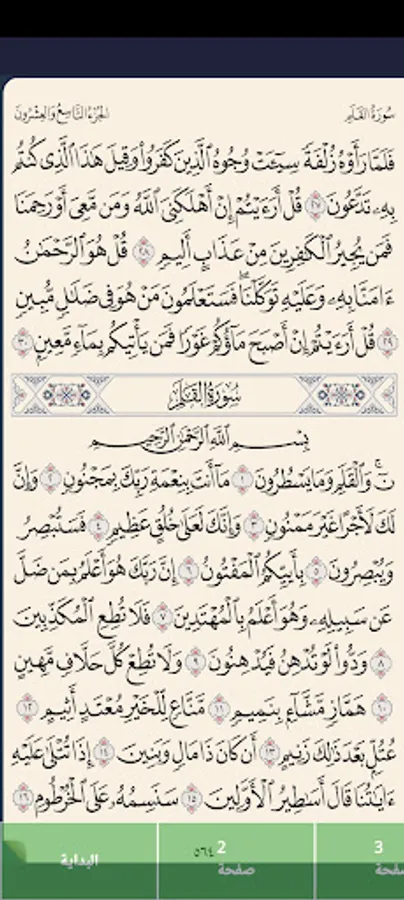 سُورَةُ القَلَمِ الجُزْءُ التَّاسِعُ وَالعِشْرُونَ
فَلَمَّا رَأَوْهُ زُلْفَةً سِيٓـَٔتْ وُجُوهُ ٱلَّذِينَ كَفَرُوا۟ وَقِيلَ هَٰذَا ٱلَّذِى كُنتُم
بِهِۦ تَدَّعُونَ ٢٧ قُلْ أَرَءَيْتُمْ إِنْ أَهْلَكَنِىَ ٱللَّهُ وَمَن مَّعِىَ أَوْ رَحِمَنَا
فَمَن يُجِيرُ ٱلْكَٰفِرِينَ مِنْ عَذَابٍ أَلِيمٍ ٢٨ قُلْ هُوَ ٱلرَّحْمَٰنُ
ءَامَنَّا بِهِۦ وَعَلَيْهِ تَوَكَّلْنَا ۖ فَسَتَعْلَمُونَ مَنْ هُوَ فِى ضَلَٰلٍ مُّبِينٍ
٢٩ قُلْ أَرَءَيْتُمْ إِنْ أَصْبَحَ مَآؤُكُمْ غَوْرًا فَمَن يَأْتِيكُم بِمَآءٍ مَّعِينٍۭ ٣٠
سُورَةُ القَلَمِ
بِسْمِ ٱللَّهِ ٱلرَّحْمَٰنِ ٱلرَّحِيمِ
نٓ ۚ وَٱلْقَلَمِ وَمَا يَسْطُرُونَ ١ مَآ أَنتَ بِنِعْمَةِ رَبِّكَ بِمَجْنُونٍ ٢ وَإِنَّ
لَكَ لَأَجْرًا غَيْرَ مَمْنُونٍ ٣ وَإِنَّكَ لَعَلَىٰ خُلُقٍ عَظِيمٍ ٤ فَسَتُبْصِرُ
وَيُبْصِرُونَ ٥ بِأَييِّكُمُ ٱلْمَفْتُونُ ٦ إِنَّ رَبَّكَ هُوَ أَعْلَمُ بِمَن ضَلَّ
عَن سَبِيلِهِۦ وَهُوَ أَعْلَمُ بِٱلْمُهْتَدِينَ ٧ فَلَا تُطِعِ ٱلْمُكَذِّبِينَ
٨ وَدُّوا۟ لَوْ تُدْهِنُ فَيُدْهِنُونَ ٩ وَلَا تُطِعْ كُلَّ حَلَّافٍ مَّهِينٍ
١٠ هَمَّازٍ مَّشَّآءٍۭ بِنَمِيمٍ ١١ مَّنَّاعٍ لِّلْخَيْرِ مُعْتَدٍ أَثِيمٍ ١٢
عُتُلٍّۭ بَعْدَ ذَٰلِكَ زَنِيمٍ ١٣ أَن كَانَ ذَا مَالٍ وَبَنِينَ ١٤ إِذَا تُتْلَىٰ عَلَيْهِ
ءَايَٰتُنَا قَالَ أَسَٰطِيرُ ٱلْأَوَّلِينَ ١٥ سَنَسِمُهُۥ عَلَى ٱلْخُرْطُومِ ١٦
٥٦٤
3 2 البداية
صفحة صفحة